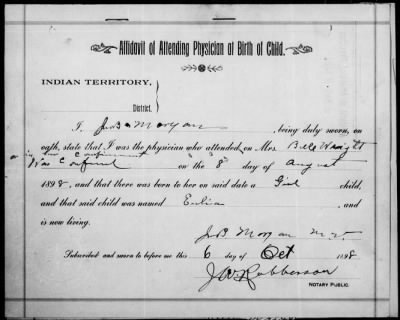 Affidavit of Attending Physician at Birth of Child.
INDIAN TERRITORY,
District.
I, J B Morgan, being duly sworn, on
oath, state that I was the physician who attended on Mrs. Bell Wright
in confinement
Was Confined on the "8" day of August
1898, and that there was born to her on said date a Girl child,
and that said child was named Eulia, and
is now living.
J B. Morgan M.D.
Subscribed and sworn to before me this 6 day of Oct 1898
J W Robberson
NOTARY PUBLIC.